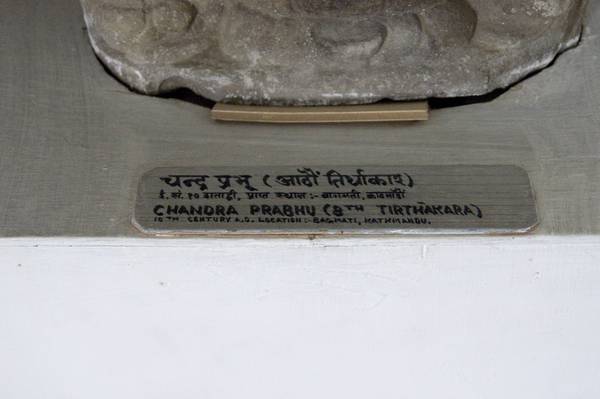 चन्द्र प्रभू (आठौं तिर्थाकार)
ई. सं. १० शताब्दी, प्राप्त स्थान :- बागमती, काठमाडौं
CHANDRA PRABHU (8TH TIRTHAKARA)
10TH CENTURY A.D. LOCATION :- BAGMATI, KATHMANDU.